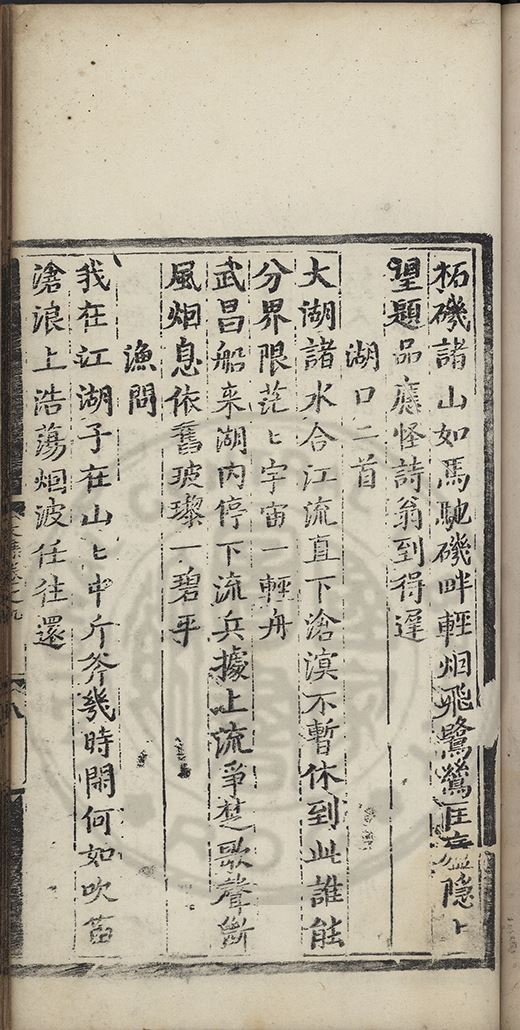 柘磯諸山如馬馳磯畔輕烟飛鷺鷥匡廬隱〻
望題品應怪詩翁到得遲
湖口二首
大湖諸水合江流直下滄溟不暫休到此誰能
分界限茫〻宇宙一輕舟
武昌船来湖內停下流兵據上流爭楚歌聲斷
風烟息依舊玻瓈一碧平
漁問
我在江湖子在山〻中斤斧幾時閑何如吹笛
滄浪上浩蕩烟波任往還